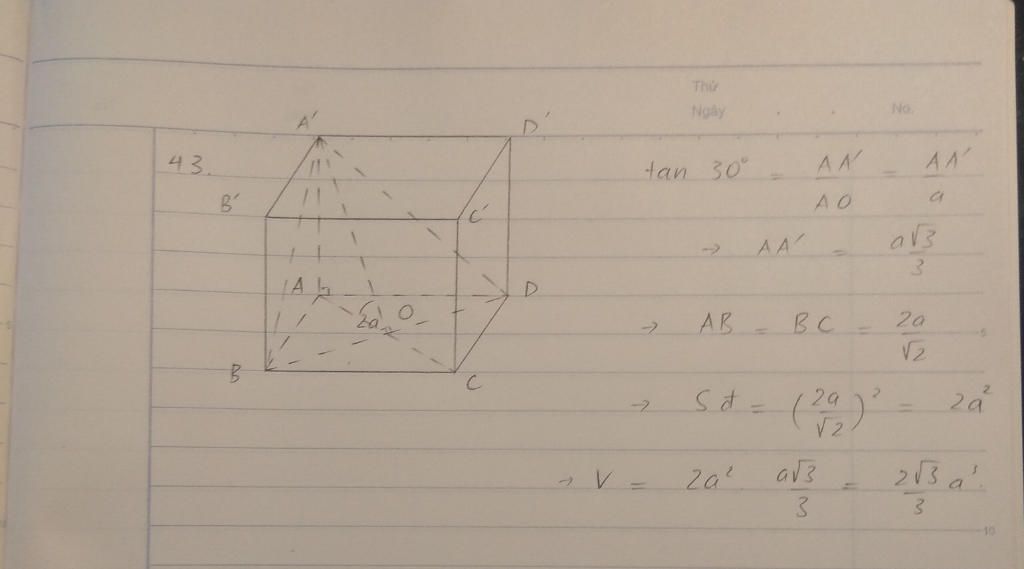 Thứ
Ngày . . No.
43.
A' D'
B' C'
A D
O
2a
B C
tan 30° = AA'/AO = AA'/a
→ AA' = a√3/3
→ AB = BC = 2a/√2
→ Sđ = (2a/√2)² = 2a²
→ V = 2a² . a√3/3 = 2√3/3 a³.
5
10